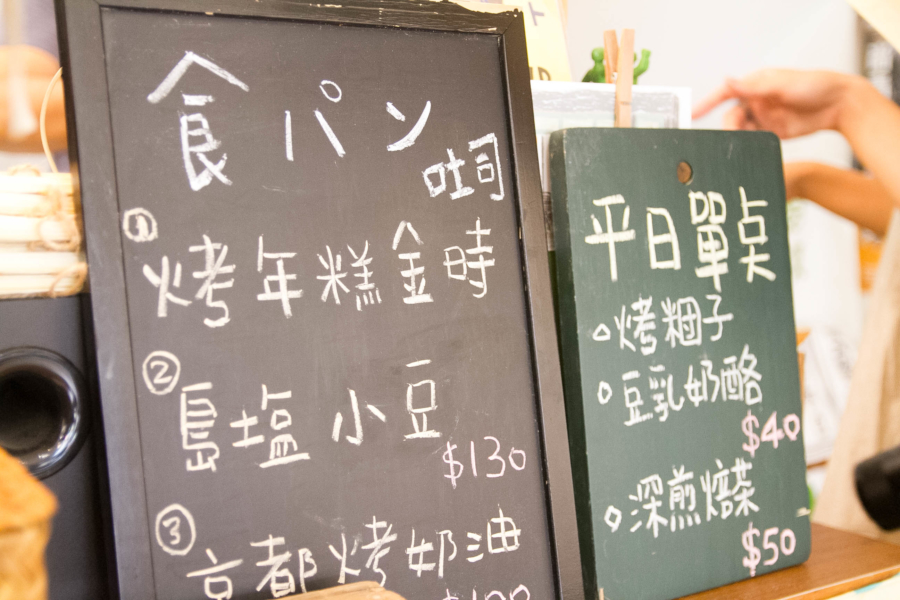 食パン
吐司
①
烤年糕金時
②
島塩小豆
$130
③
京都烤奶油
平日單点
烤糰子
豆乳奶酪
$40
深煎焙茶
$50